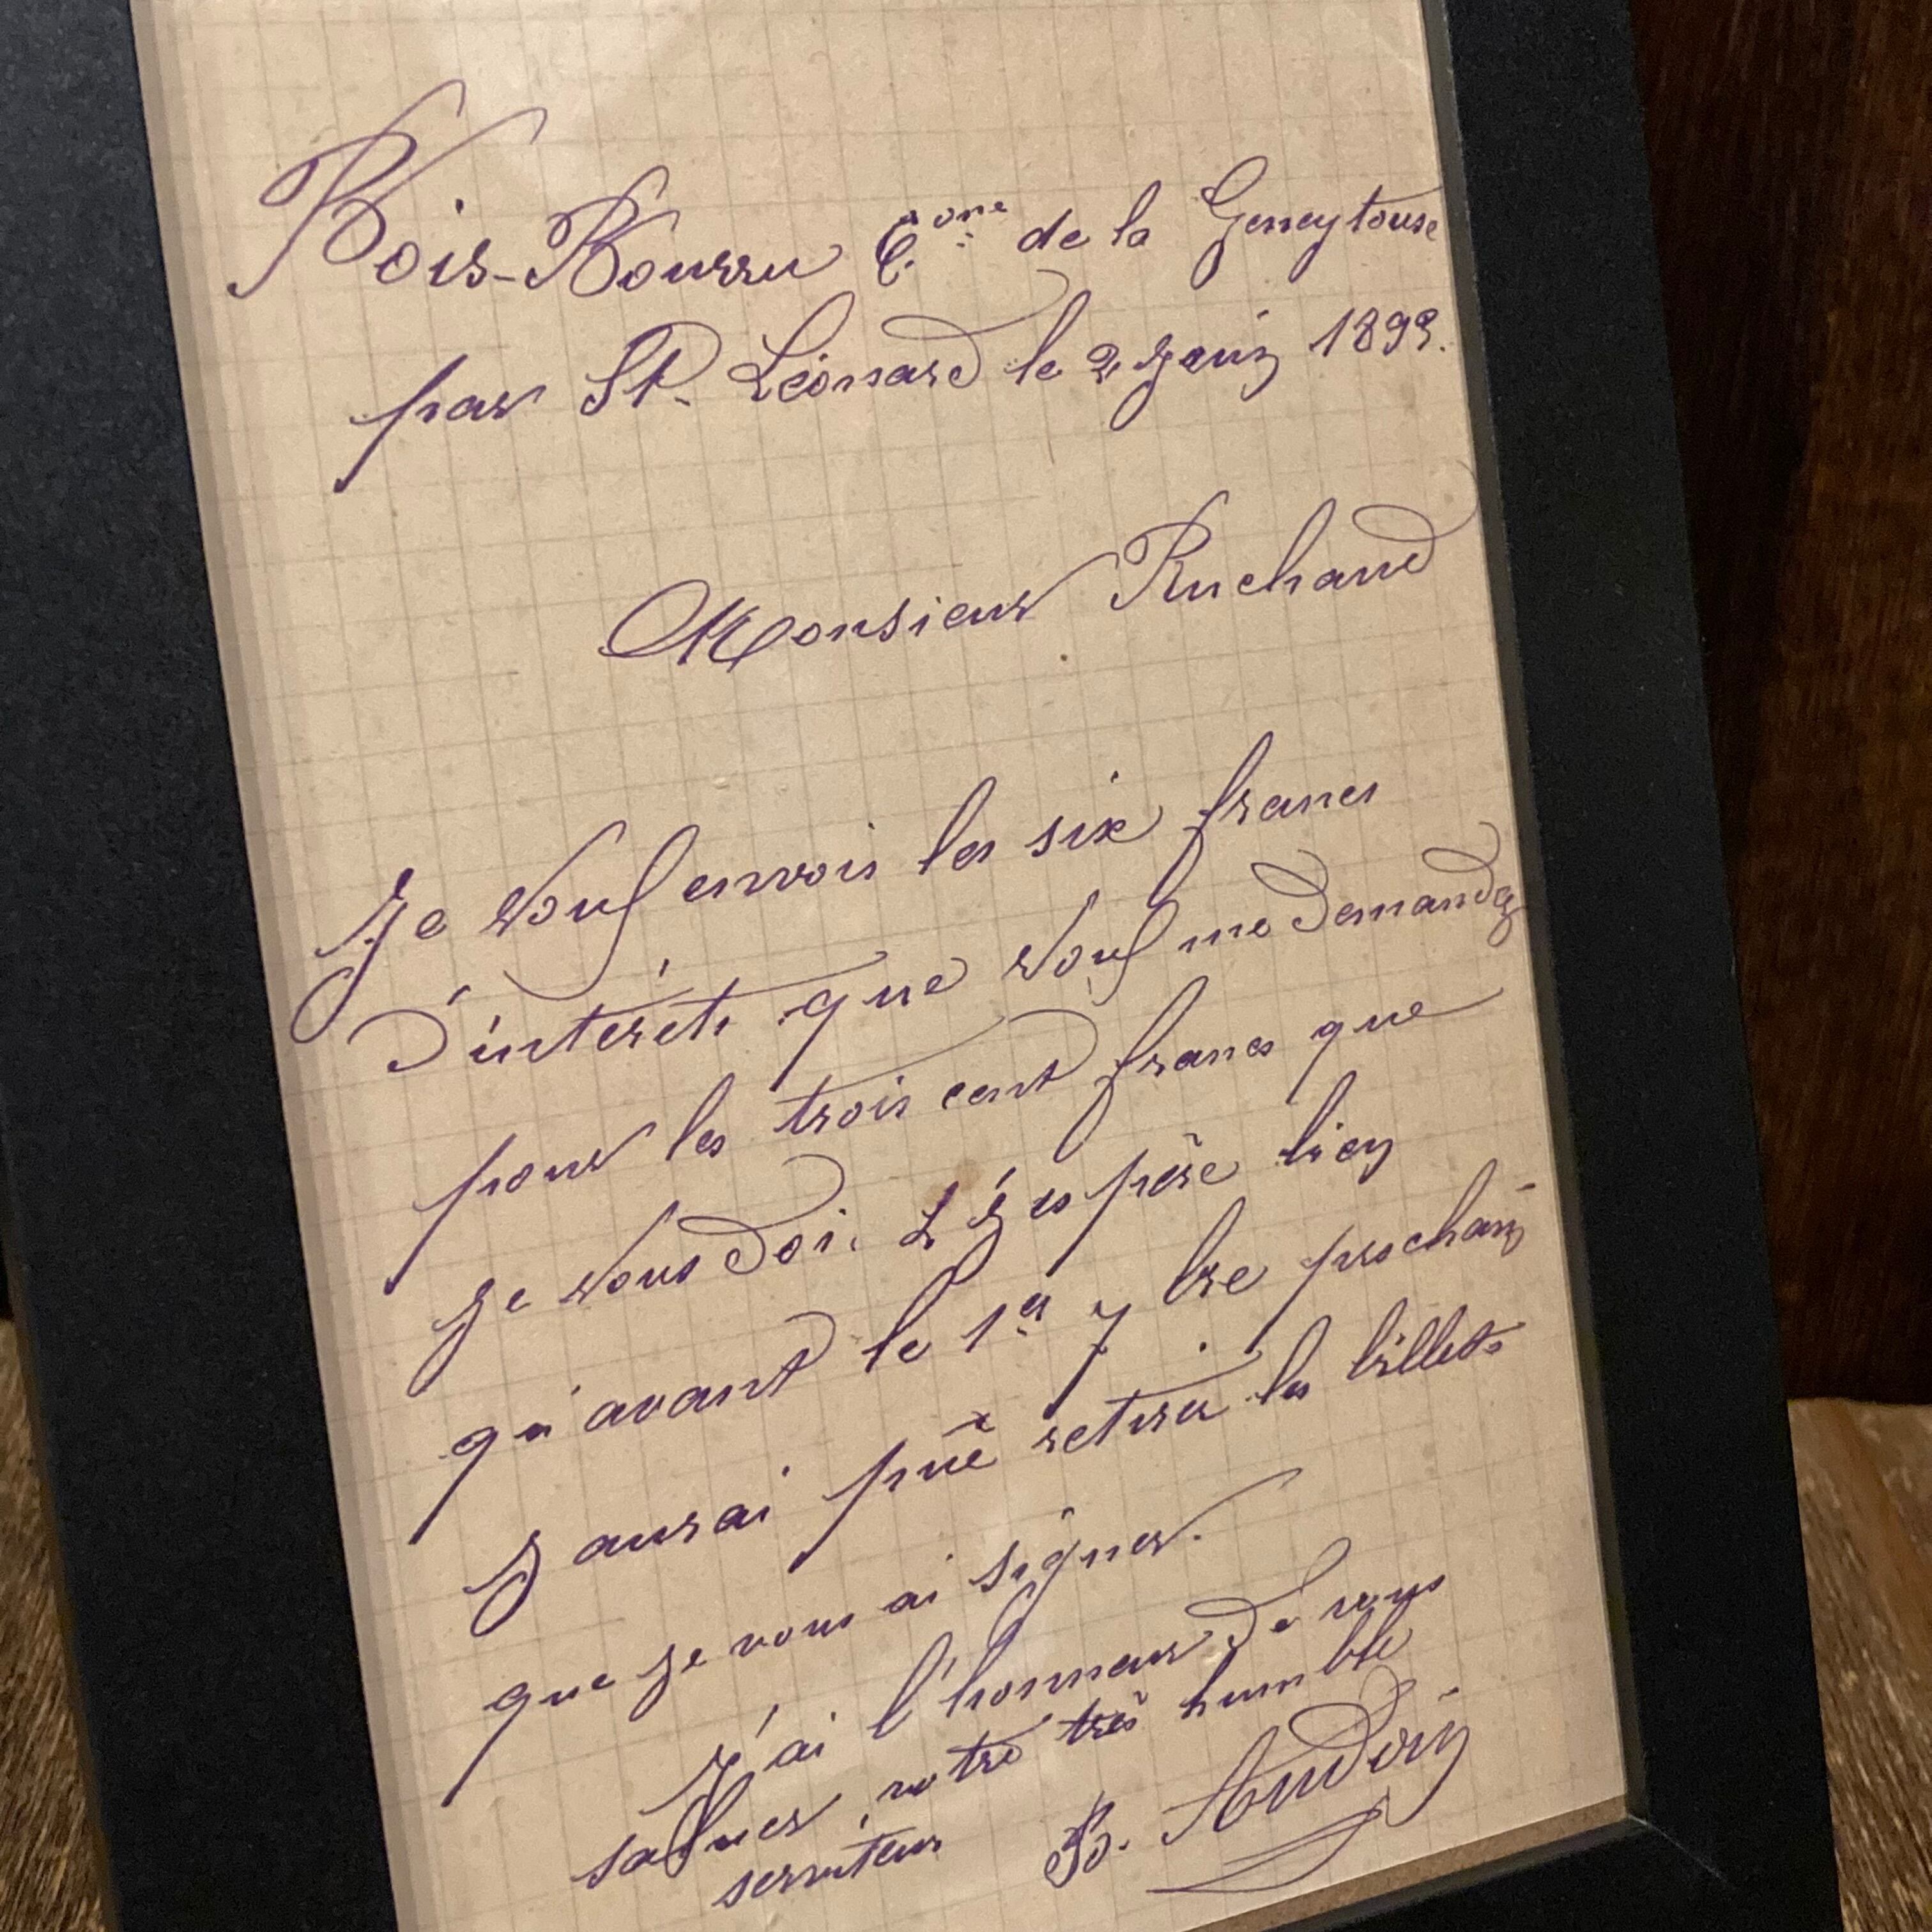 Bois-Bourru C.one de la Geneytouse
par St. Léonard le 2 Juin 1899.
Monsieur Ruchaud
Je vous envois les six francs
d'intérêts que vous me demandez
pour les trois cent francs que
je vous doi. J'éspère bien
qu'avant le 1er 7bre prochain
J aurai puê retirer les billets
que je vous ai signer.
J'ai l'honneur de vous
saluer, votre très humble
serviteur B. Audoin